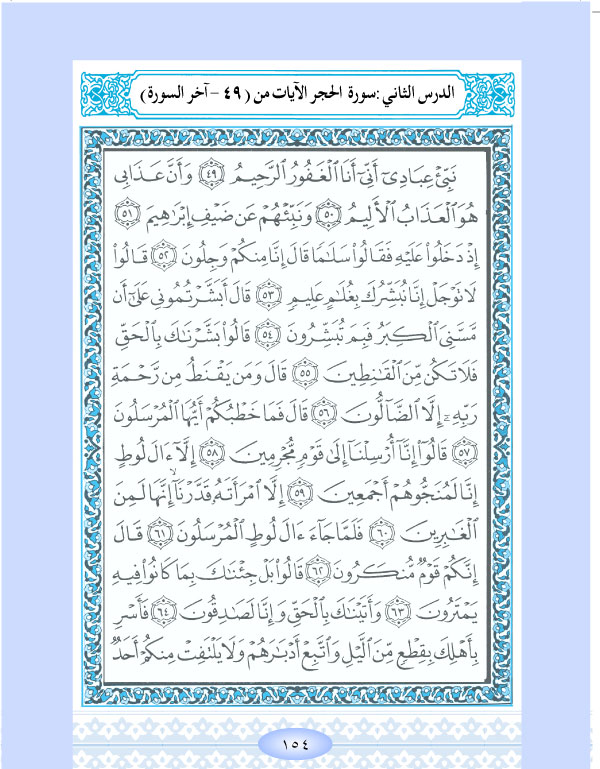 الدرس الثاني :سورة الحجر الآيات من (٤٩ - آخر السورة)
نَبِّئْ عِبَادِىٓ أَنِّىٓ أَنَا ٱلْغَفُورُ ٱلرَّحِيمُ ٤٩ وَأَنَّ عَذَابِى
هُوَ ٱلْعَذَابُ ٱلْأَلِيمُ ٥٠ وَنَبِّئْهُمْ عَن ضَيْفِ إِبْرَٰهِيمَ ٥١
إِذْ دَخَلُوا۟ عَلَيْهِ فَقَالُوا۟ سَلَٰمًا قَالَ إِنَّا مِنكُمْ وَجِلُونَ ٥٢ قَالُوا۟
لَا تَوْجَلْ إِنَّا نُبَشِّرُكَ بِغُلَٰمٍ عَلِيمٍ ٥٣ قَالَ أَبَشَّرْتُمُونِى عَلَىٰٓ أَن
مَّسَّنِىَ ٱلْكِبَرُ فَبِمَ تُبَشِّرُونَ ٥٤ قَالُوا۟ بَشَّرْنَٰكَ بِٱلْحَقِّ
فَلَا تَكُن مِّنَ ٱلْقَٰنِطِينَ ٥٥ قَالَ وَمَن يَقْنَطُ مِن رَّحْمَةِ
رَبِّهِۦٓ إِلَّا ٱلضَّآلُّونَ ٥٦ قَالَ فَمَا خَطْبُكُمْ أَيُّهَا ٱلْمُرْسَلُونَ
٥٧ قَالُوٓا۟ إِنَّآ أُرْسِلْنَآ إِلَىٰ قَوْمٍ مُّجْرِمِينَ ٥٨ إِلَّآ ءَالَ لُوطٍ
إِنَّا لَمُنَجُّوهُمْ أَجْمَعِينَ ٥٩ إِلَّا ٱمْرَأَتَهُۥ قَدَّرْنَآ ۙ إِنَّهَا لَمِنَ
ٱلْغَٰبِرِينَ ٦٠ فَلَمَّا جَآءَ ءَالَ لُوطٍ ٱلْمُرْسَلُونَ ٦١ قَالَ
إِنَّكُمْ قَوْمٌ مُّنكَرُونَ ٦٢ قَالُوا۟ بَلْ جِئْنَٰكَ بِمَا كَانُوا۟ فِيهِ
يَمْتَرُونَ ٦٣ وَأَتَيْنَٰكَ بِٱلْحَقِّ وَإِنَّا لَصَٰدِقُونَ ٦٤ فَأَسْرِ
بِأَهْلِكَ بِقِطْعٍ مِّنَ ٱلَّيْلِ وَٱتَّبِعْ أَدْبَٰرَهُمْ وَلَا يَلْتَفِتْ مِنكُمْ أَحَدٌ
١٥٤